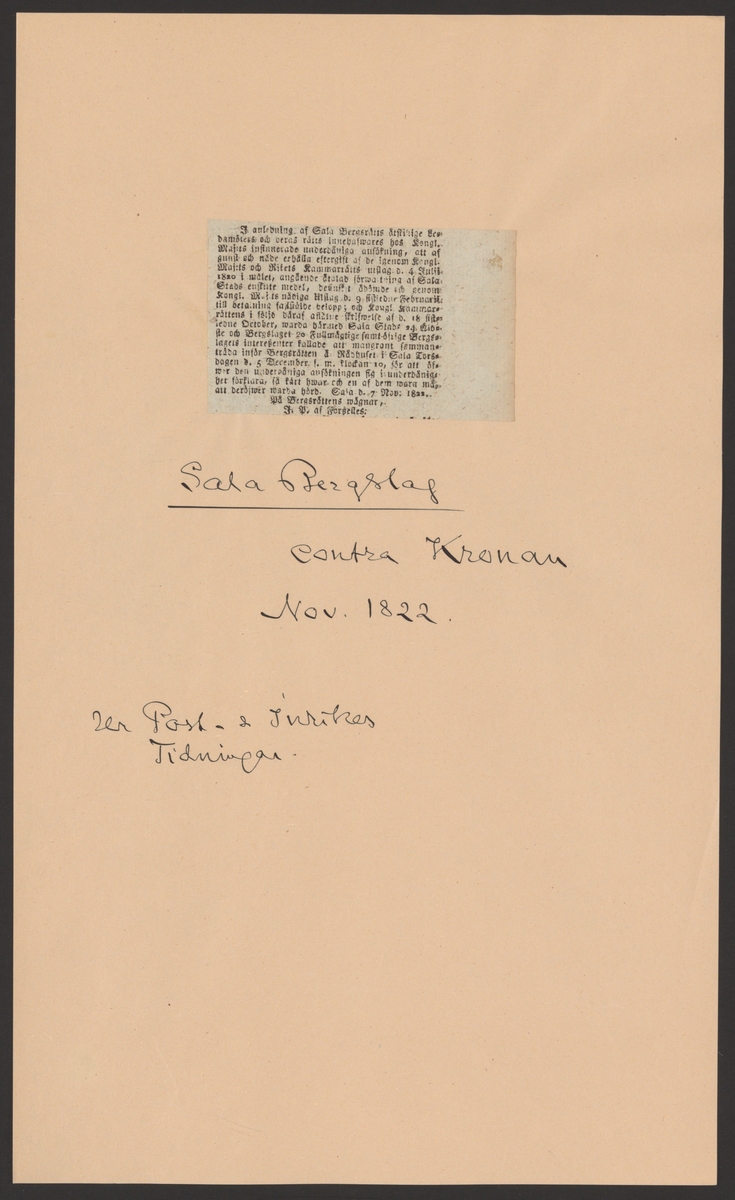 I anledning af Sala Bergsrätts åtskillige Le-
damöters och deras rätts innehafwares hos Kongl.
Maj:ts insinuerade underdåniga ansökning, att af
gunst och nåde erhålla eftergift af de igenom Kongl.
Maj:ts och Rikets Kammarrätts utslag d. 4 Julii
1820 i målet, angående åtalad förwaltning af Sala
Stads enskilte medel, ådömde och genom
Kongl. Maj:ts nådiga Utslag d. 9 sistledne Februarii,
till betalning fastställde belopp; och Kongl. Kammar-
rättens i följd däraf aflåtne skrifwelse af d. 18 sist-
ledne October, warda härmed Sala Stads 24 Äld-
ste och Bergslaget 20 Fullmägtige samt öfrige Bergs-
lagets interessenter kallade att mangrant samman-
träda inför Bergsrätten å Rådhuset i Sala Tors-
dagen d. 5 December f. m. klockan 10, för att öf-
wer den underdåniga ansökningen sig i underdånig-
het förklara, så kärt hwar och en af dem wara må,
att deröfwer warda hörd. Sala d. 7 Nov. 1822.
På Bergsrättens wägnar,
J. P. af Forselles.
Sala Bergslag
contra Kronan
Nov. 1822.
Ur Post- & Inrikes
Tidningar.